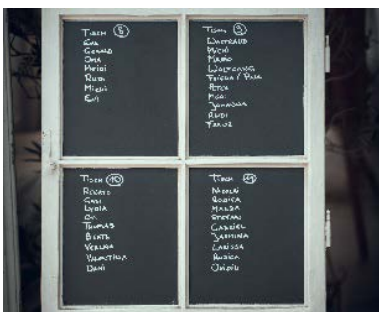 Tisch 8
Eva
Gerald
Oma
Heidi
Rudi
Michi
Evi
Tisch 9
Waltraud
Michi
Mario
Wolfgang
Peter
Johanna
Rudi
Franz
Tisch 10
Renate
Gabi
Lydia
Thomas
Beate
Verena
Valentina
Dani
Tisch 11
Nicolai
Rodica
Stefan
Gabriel
Jasmina
Larissa
Rodica
Ovidiu